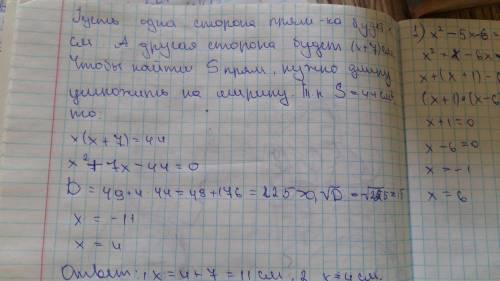 Пусть одна сторона прям-ка будет
см. А другая сторона будет (x+7) см.
Чтобы найти S прям, нужно длину
умножить на ширину. Т.к S = 44 см²
то:
x(x+7)=44
x²+7x-44=0
D = 49+4·44=49+176=225>0, √D=√225=15
x = -11
x = 4
Ответ: 1 x=4+7=11 см, 2 x=4 см.
1) x²-5x-6=
x²+x-6x=
x+(x+1)-
(x+1)·(x-6
x+1=0
x-6=0
x=-1
x=6